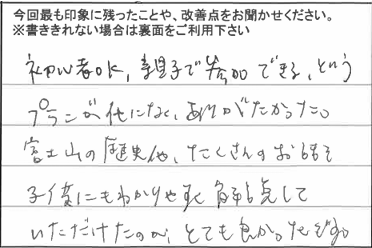 今回最も印象に残ったことや、改善点をお聞かせください。
※書ききれない場合は裏面をご利用下さい
初心者OK、親子で参加できる、という
プランが他になく、ありがたかった。
富士山の歴史他、たくさんのお話を
子供にもわかりやすく解説して
いただけたのが、とても良かったです。